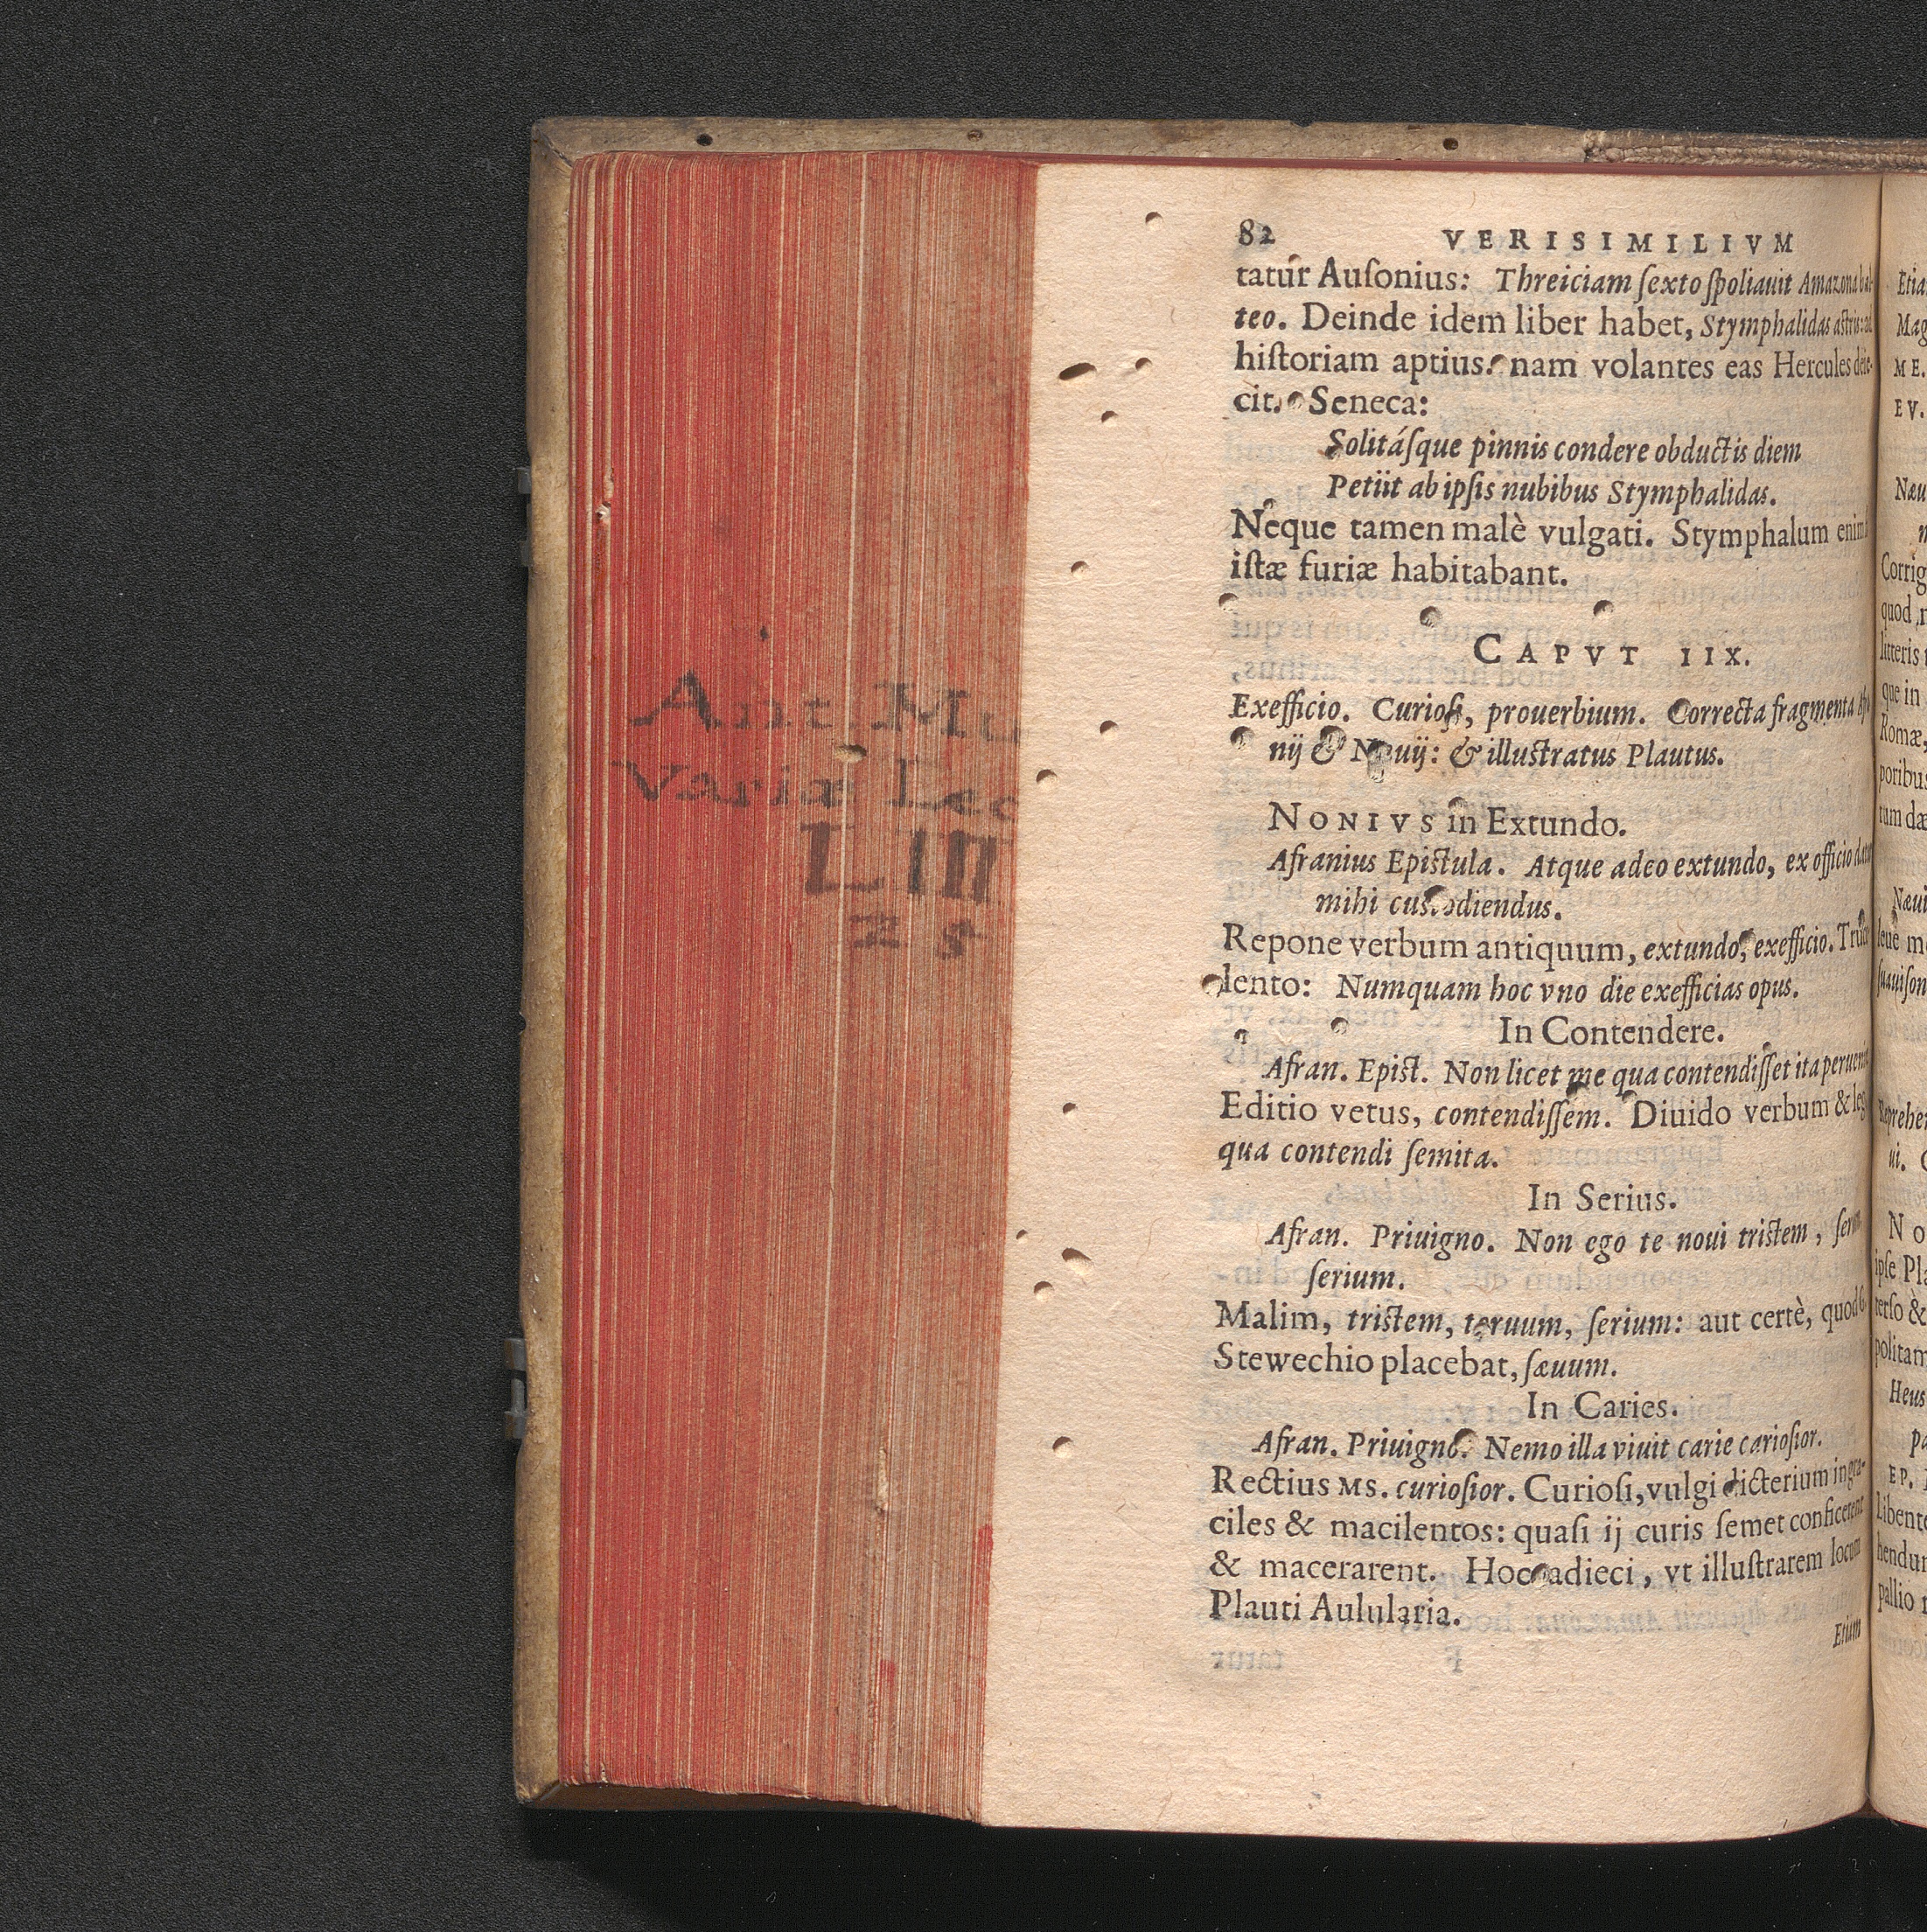 Ant Mu
Variæ Lec
LIII
25
82 VERISIMILIVM
tatur Auſonius: Threiciam ſexto ſpoliauit Amazona bal-
teo. Deinde idem liber habet, Stymphalidas astris: ad
hiſtoriam aptius. nam volantes eas Hercules deie-
cit. Seneca:
Solitáſque pinnis condere obductis diem
Petiit ab ipſis nubibus Stymphalidas.
Neque tamen malè vulgati. Stymphalum enim
iſtæ furiæ habitabant.
CAPVT IIX.
Exefficio. Curioſi, prouerbium. Correcta fragmenta
nij & Næuij: & illustratus Plautus.
NONIVS in Extundo.
Afranius Epistula. Atque adeo extundo, ex officio datur
mihi custodiendus.
Repone verbum antiquum, extundo, exefficio. Trucu-
lento: Numquam hoc vno die exefficias opus.
In Contendere.
Afran. Epist. Non licet me qua contendiſſet ita
Editio vetus, contendiſſem. Diuido verbum & lego
qua contendi ſemita.
In Serius.
Afran. Priuigno. Non ego te noui tristem,
ſerium.
Malim, tristem, toruum, ſerium: aut certè, quod
Stewechio placebat, ſæuum.
In Caries.
Afran. Priuigno. Nemo illa viuit carie carioſior.
Rectius MS. curioſior. Curioſi, vulgi dicterium in gra-
ciles & macilentos: quaſi ij curis ſemet conficerent
& macerarent. Hoc adieci, vt illuſtrarem locum
Plauti Aulularia.
Etiam
Etia
Mag
ME.
EV.
Næu
Corrig
quod
litteris
que in
Romæ,
poribus
tum dæ
Næui
leue m
ſuauiſon
Reprehen
ui.
No
ipſe Pla
terſo &
politam
Heus
EP.
Libente
hendun
pallio